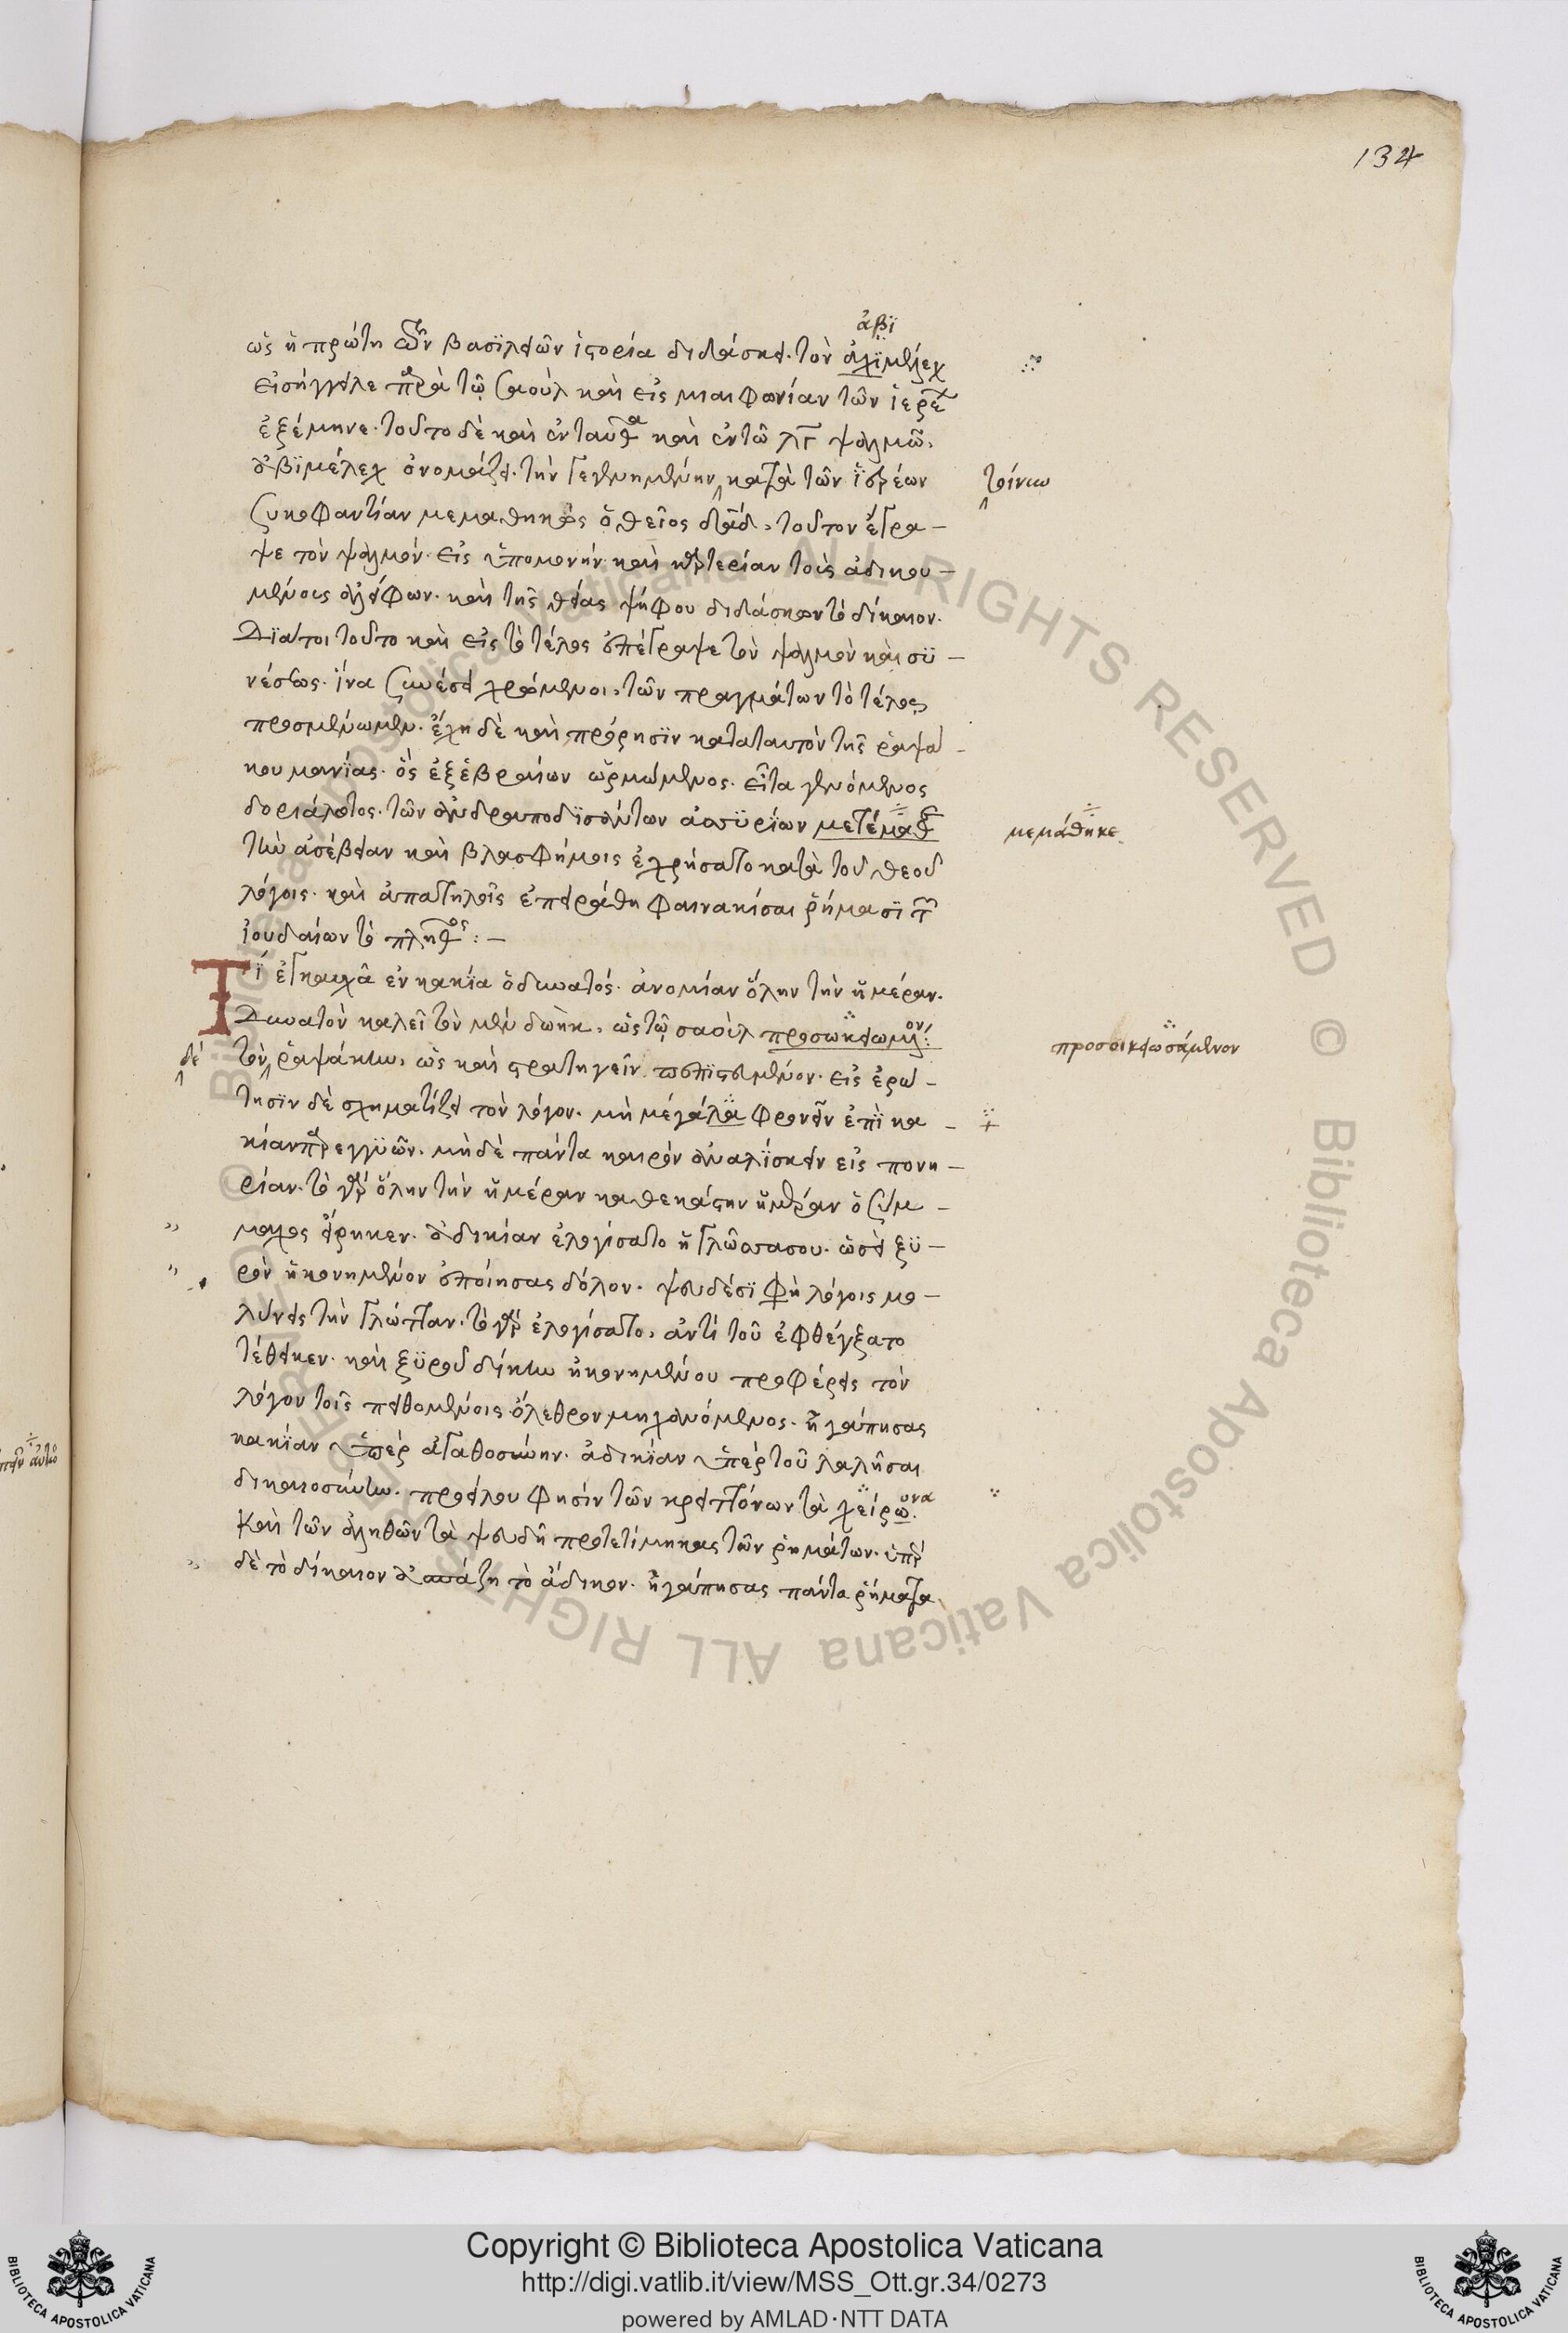 134
ἀβϊ
ὡς ἡ πρώτη τῶν βασϊλειῶν ἱστορία διδάσκει. τὸν ἀχϊμέλεχ
εἰσήγγειλε παρὰ τῷ σαοὺλ καὶ εἰς μιαιφωνίαν τῶν ἱερέων
ἐξέμηνε. τοῦτο δὲ καὶ ἐνταῦθα καὶ ἐν τῶ λγ ψαλμῶ.
ἀβϊμέλεχ ὀνομάζει. τὴν γεγενημένην κατὰ τῶν ἱερέων
τοίνυν
συκοφαντίαν μεμαθηκὼς ὁ θεῖος δαδ, τοῦτον ἔγρα-
ψε τὸν ψαλμόν. εἰς ὑπομονὴν καὶ καρτερίαν τοὺς ἀδικου-
μένους ἀλείφων. καὶ τῆς θείας ψήφου διδάσκων τὸ δίκαιον.
Διάτοι τοῦτο καὶ εἰς τὸ τέλος ἐπέγραψε τὸν ψαλμὸν καὶ συ-
νέσεως. ἵνα συνέσει χρώμενοι, τῶν πραγμάτων τὸ τέλος
προσμένωμεν. ἔχει δὲ καὶ πρόρησϊν κατὰ ταυτὸν τῆς ῥαψά-
κου μανίας. ὃς ἐξ ἑβραίων ὡρμώμενος. εἶτα γενόμενος
δοριάλωτος. τῶν ἀνδραποδϊσάντων ἀσσϋρίων μετέμαθε
μεμάθηκε.
τὴν ἀσέβειαν καὶ βλασφήμοις ἐχρήσατο κατὰ τοῦ θεοῦ
λόγοις. καὶ ἀπατηλοῖς ἐπειράθη φαινακίσαι ῥήμασϊ τῶν
ἰουδαίων τὸ πλῆθος: –
Τί ἐγκαυχᾶ ἐν κακία ὁ δυνατός. ἀνομίαν ὅλην τὴν ἡμέραν.
Δυνατὸν καλεῖ τὸν μὲν δωὴκ, ὡς τῷ σαοὺλ προσωκειωμένον:
προσοικειωσάμενον
δὲ
τὸν ῥαψάκην, ὡς καὶ στρατηγεῖν πεπϊστευμένον. εἰς ἐρώ-
τησϊν δὲ σχηματίζει τὸν λόγον. μὴ μέγάλα φρονεῖν ἐπὶ κα-
κίαν παρεγγυῶν. μὴ δὲ πάντα καιρὸν ἀναλϊσκειν εἰς πονη-
ρίαν. τὸ γὰρ ὅλην τὴν ἡμέραν καθεκάστην ἡμέραν ὁ σύμ-
μαχος εἴρηκεν. ἀδικίαν ἐλογίσατο ἡ γλῶσσα σου. ὡσεὶ ξυ-
ρὸν ἠκονημένον ἐποίησας δόλον. ψευδέσϊ φη λόγοις μο-
λύνεις τὴν γλῶτταν. τὸ γὰρ ἐλογίσατο, ἀντὶ τοῦ ἐφθέγξατο
τέθεικεν. καὶ ξϋροῦ δίκην ἠκονημένου προφέρεις τὸν
λόγον τοῖς πειθομένοις ὄλεθρον μηχανόμενος. ἠγάπησας
κακίαν ὑπὲρ ἀγαθοσύνην. ἀδικίαν ὑπὲρ τοῦ λαλῆσαι
δικαιοσύνην. προείλου φησὶν τῶν κρειττόνων τὰ χείρωονα.
Καὶ τῶν ἀληθῶν τὰ ψευδῆ προτετίμηκας τῶν ῥημάτων. ὑπὲρ
δὲ τὸ δίκαιον ἀσπάζη τὸ ἄδικον. ἠγάπησας πάντα ῥήματα
Copyright © Biblioteca Apostolica Vaticana
http://digi.vatlib.it/view/MSS_Ott.gr.34/0273
powered by AMLAD·NTT DATA
BIBLIOTECA APOSTOLICA VATICANA
BIBLIOTECA APOSTOLICA VATICANA
© Biblioteca Apostolica Vaticana ALL RIGHTS RESERVED
© Biblioteca Apostolica Vaticana ALL RIGHTS RESERVED